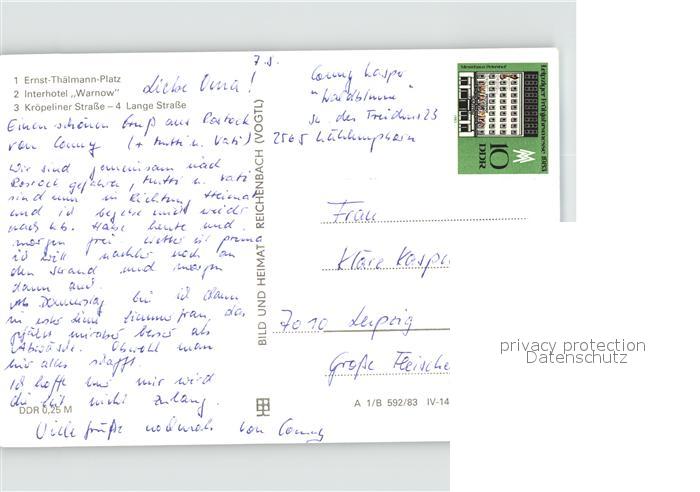 1 Ernst-Thälmann-Platz
2 Interhotel „Warnow"
3 Kröpeliner Straße – 4 Lange Straße
7.8.
Liebe Oma!
Einen schönen Gruß aus Rostock
von Conny (+ Mutti u. Vati)
Wir sind gemeinsam nach
Rostock gefahren, Mutti u. Vati
sind nun in Richtung Heimat
und ich begebe mich wieder
nach Kb. Habe heute und
morgen frei. Wetter ist prima
ich will nachher noch an
den Strand und morgen
dann auch.
Ab Donnerstag bin ich dann
in erster Linie Zimmerfrau, das
gefällt mir aber besser als
Abwäsche. Obwohl man
hier alles schafft.
Ich hoffe nur mir wird
die Zeit nicht zu lang.
Viele Grüße nochmals von Conny
DDR 0,25 M
BILD UND HEIMAT REICHENBACH (VOGTL)
A 1/B 592/83 IV-14
Conny Kaspe
"Waldblume"
23
2565 Kühlungsborn
Messehaus Petershof
Leipziger Frühjahrsmesse 1983
10
DDR
Frau
Kläre Kaspe
7010 Leipzig
Große Fleische
privacy protection
Datenschutz